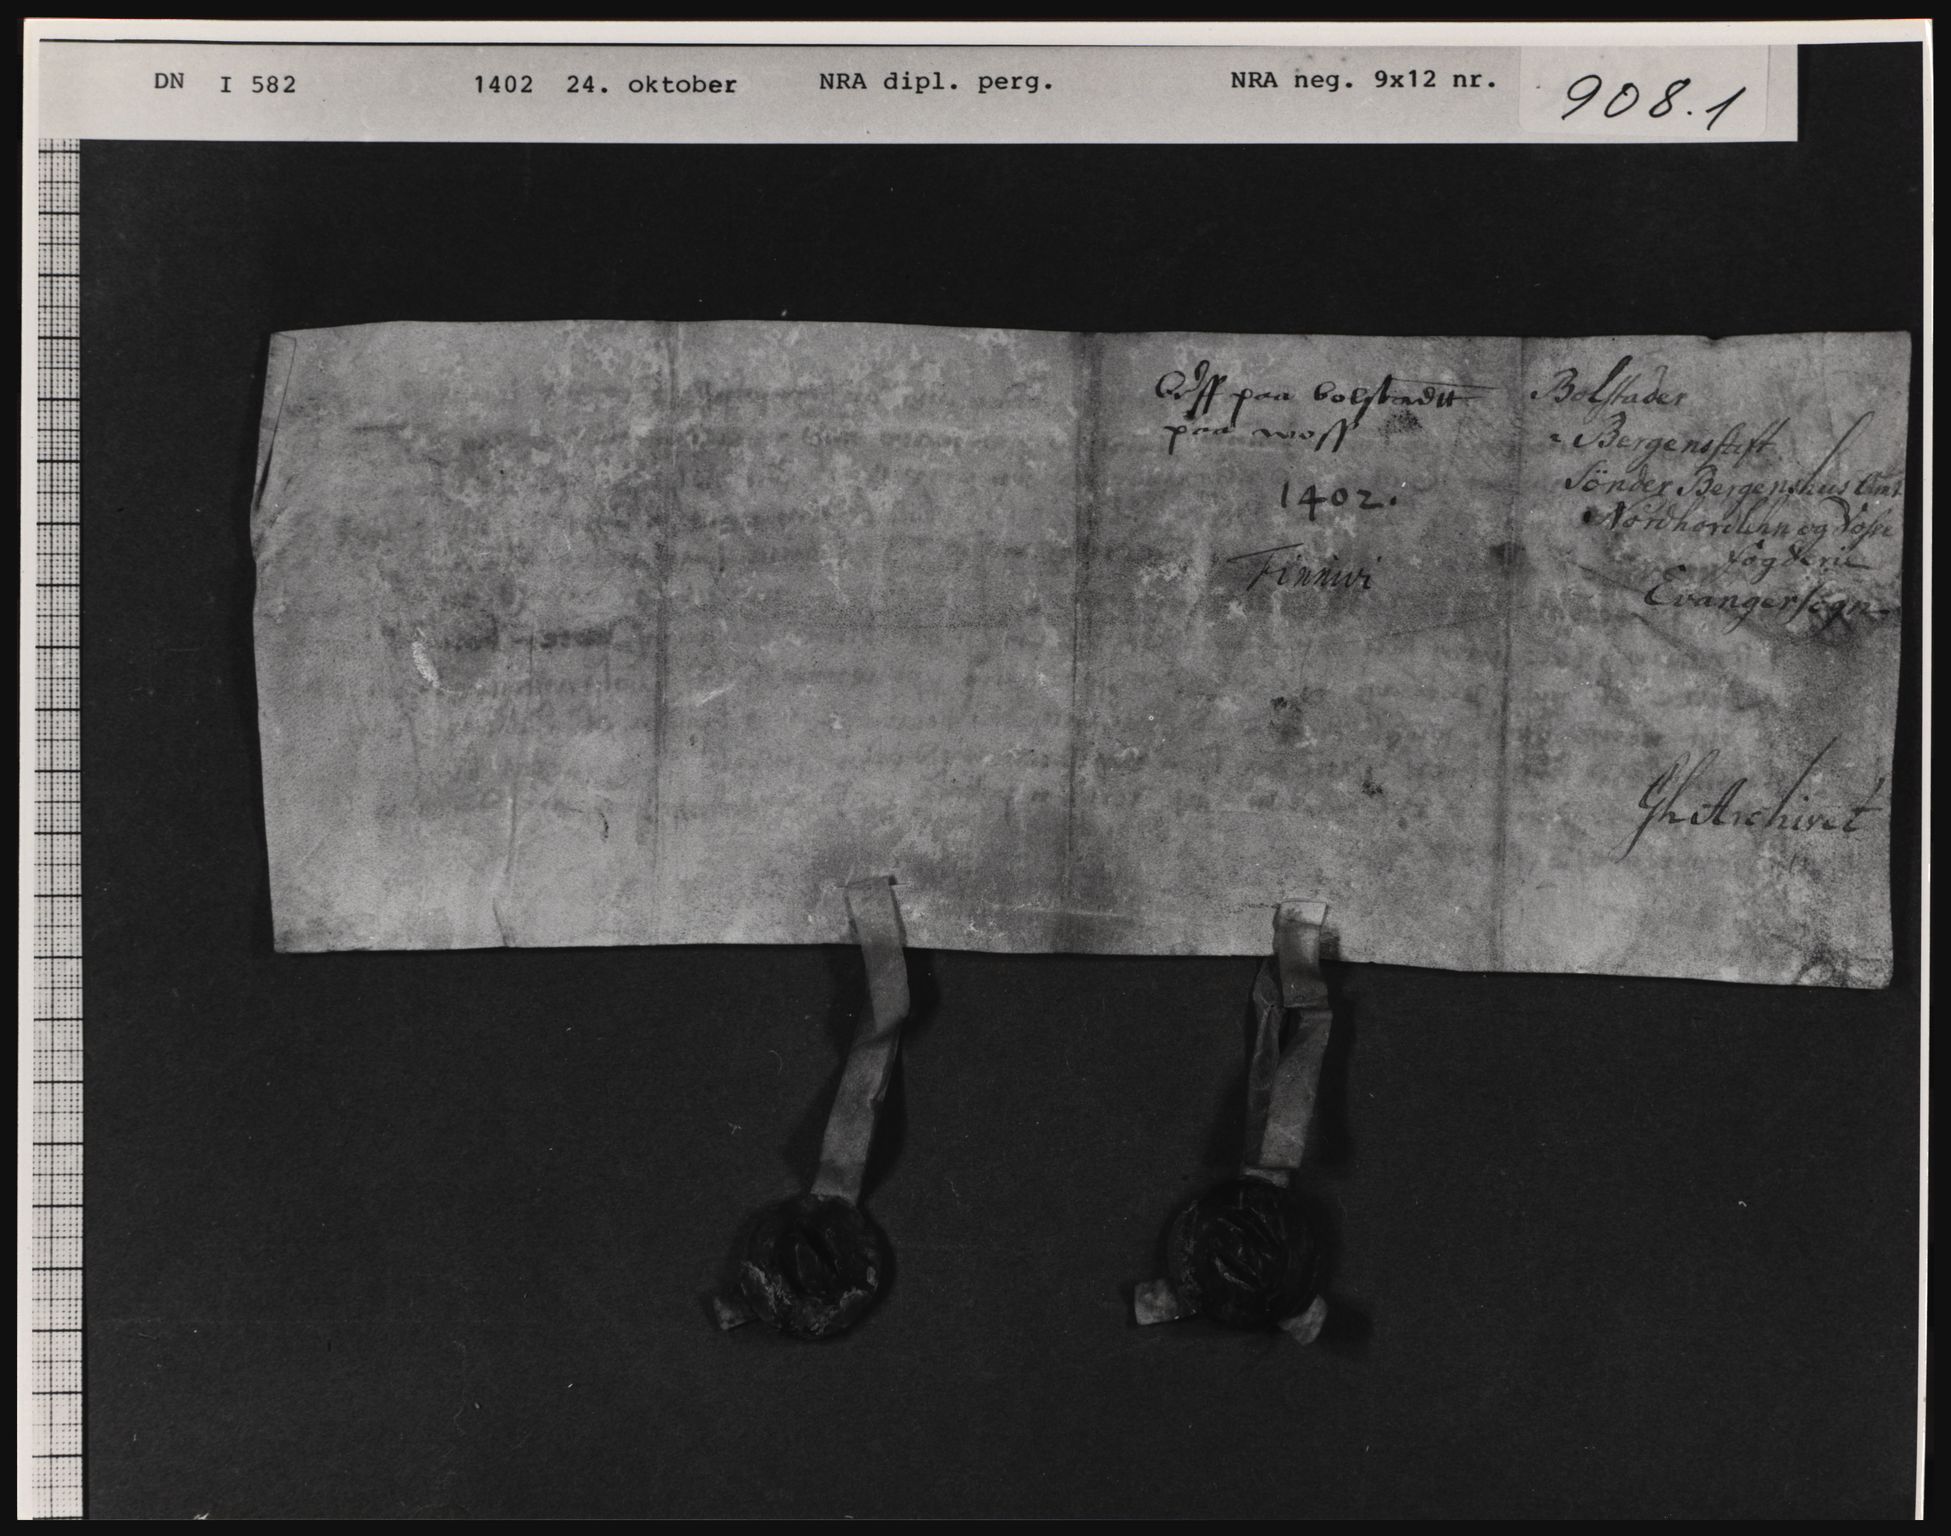 DN I 582 1402 24. oktober NRA dipl. perg. NRA neg. 9x12 nr. 908.1
paa bolstadtt
paa woss
1402.
Finnivi
Bolstader
i Bergensstift
Sönder Bergenshus Amt
Nordhordlehn og Vosse
fogderie
Evanger sogn
Gh Archivet